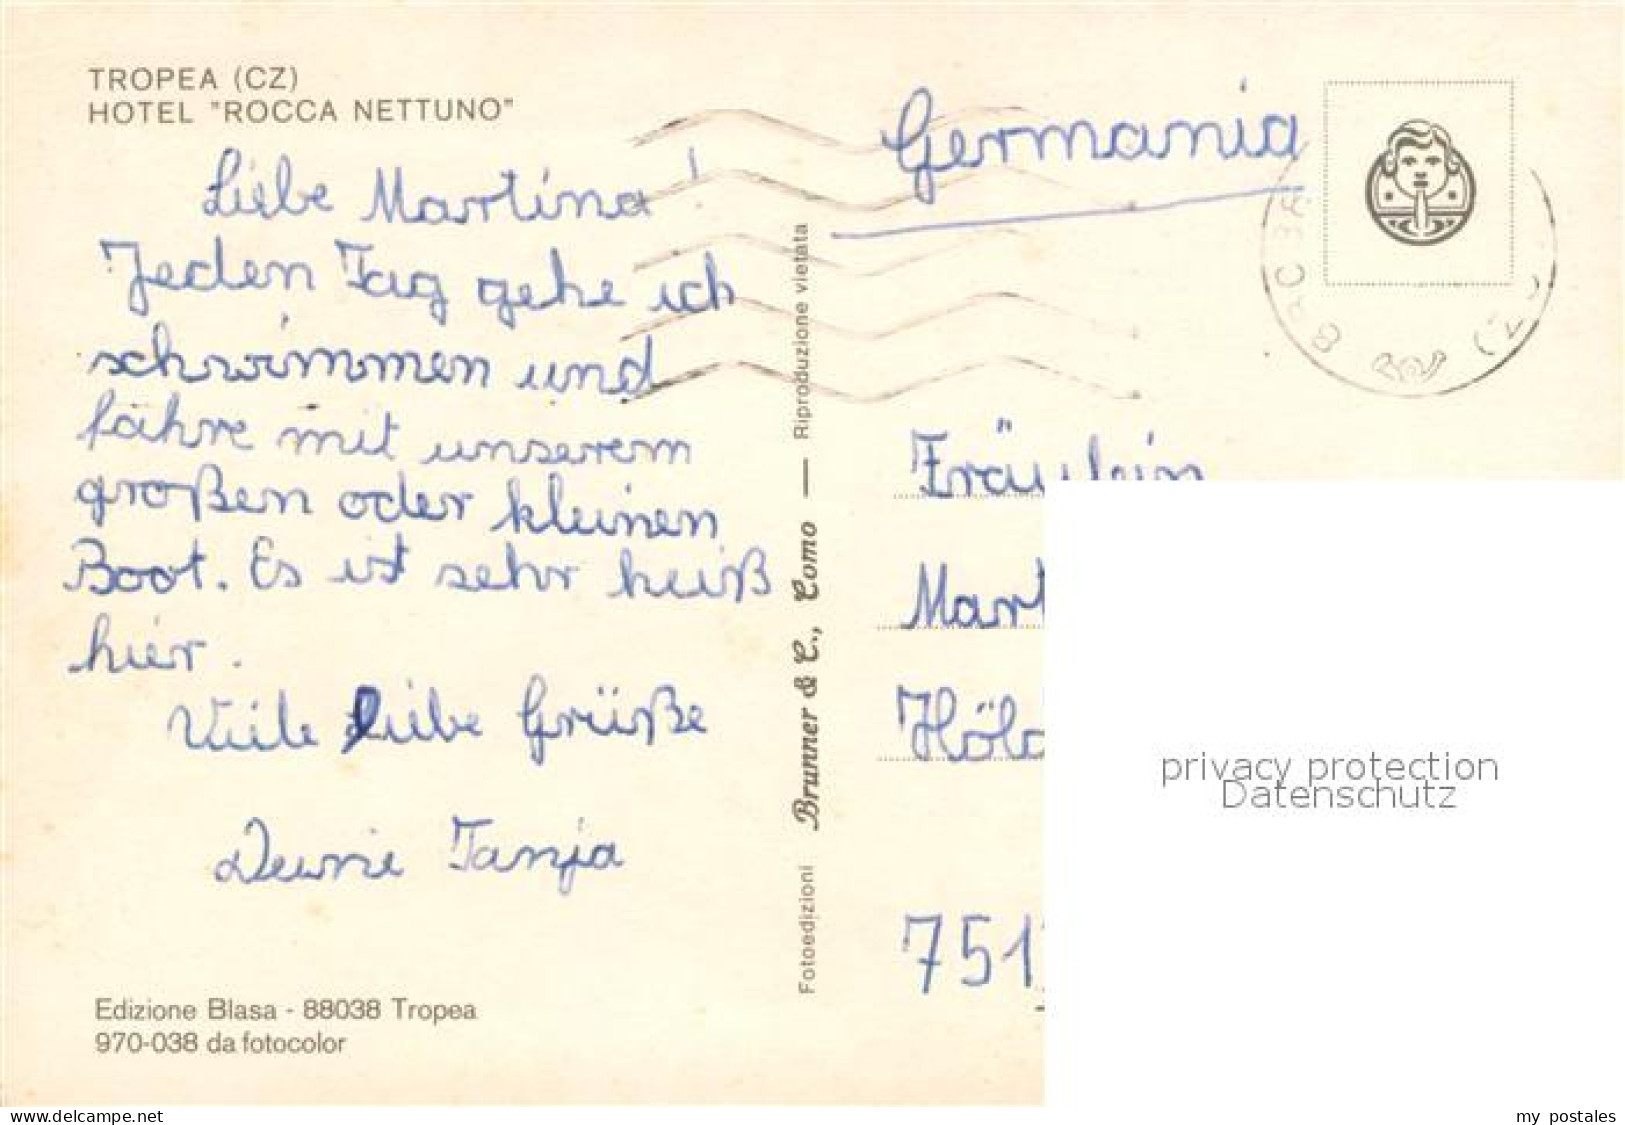 TROPEA (CZ)
HOTEL "ROCCA NETTUNO"
Liebe Martina!
Jeden Tag gehe ich
schwimmen und
fahre mit unserem
großen oder kleinen
Boot. Es ist sehr heiß
hier.
Viele Liebe Grüße
Deine Tanja
Edizione Blasa - 88038 Tropea
970-038 da fotocolor
Fotoedizioni Brunner & C., Como — Riproduzione vietata
Germania
Fräulein
Mart
Höld
751
privacy protection
Datenschutz
www.delcampe.net
my_postales